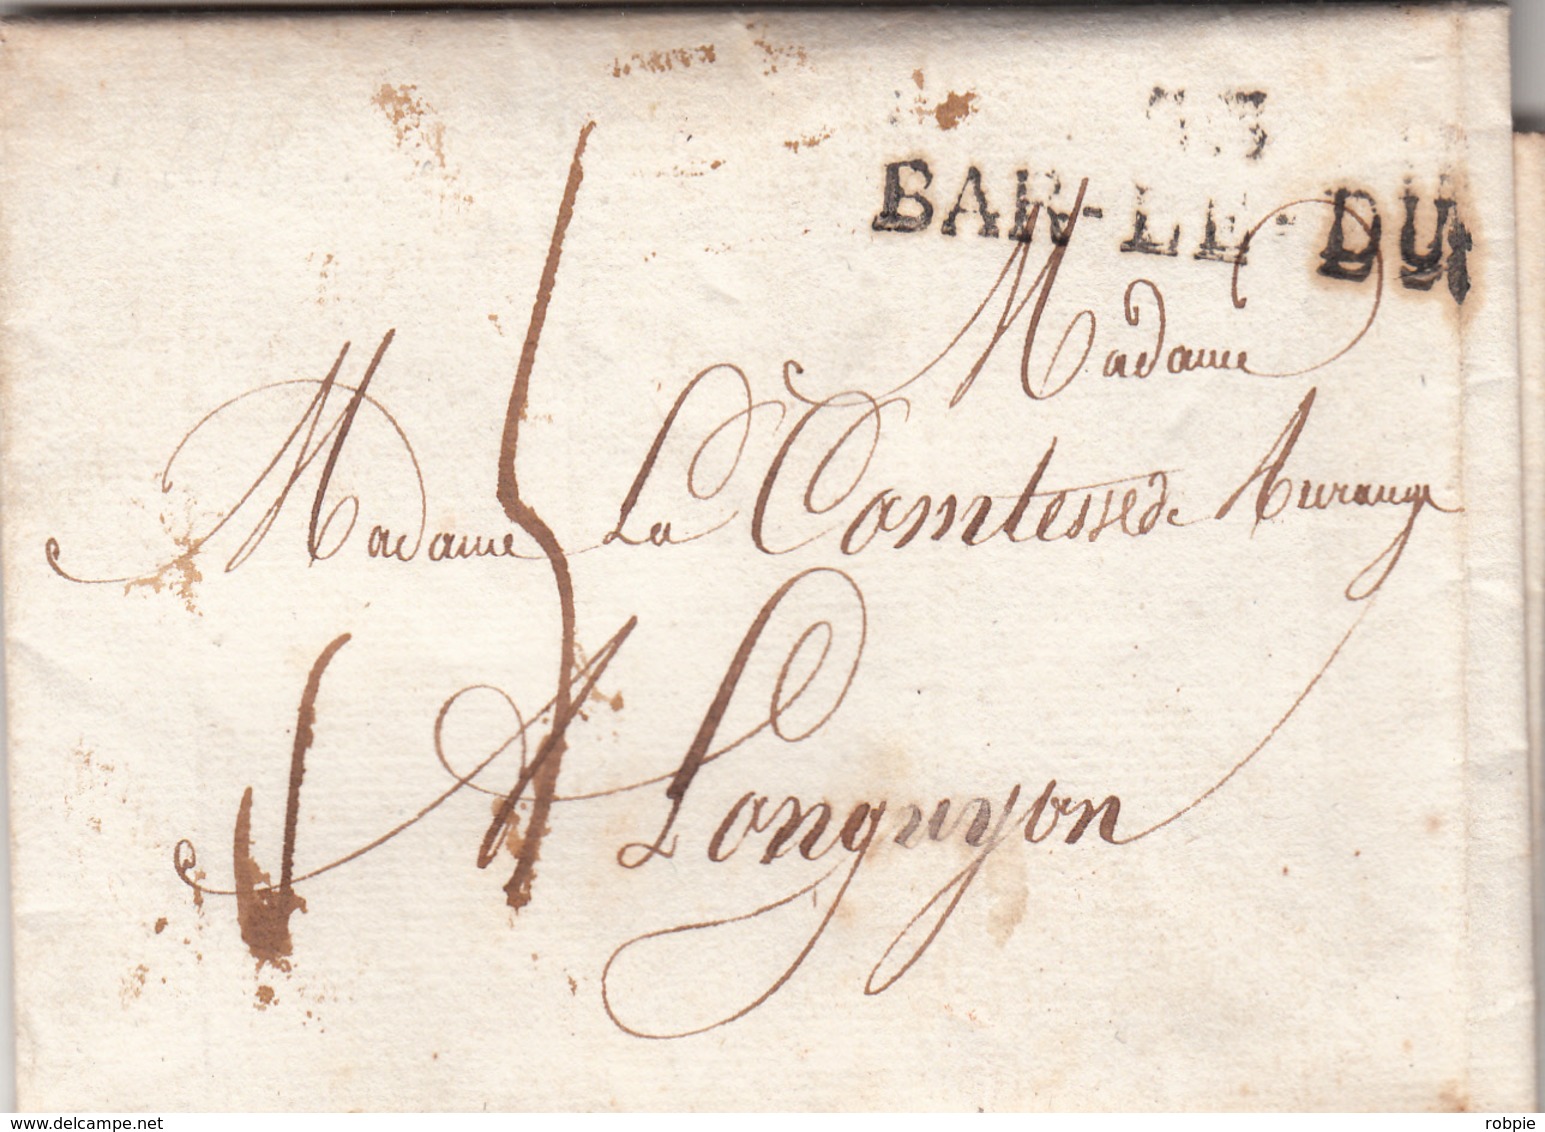 53
BAR-LE-DU
Madame
Madame La Comtesse de
Longuyon
delcampe.net
robpie